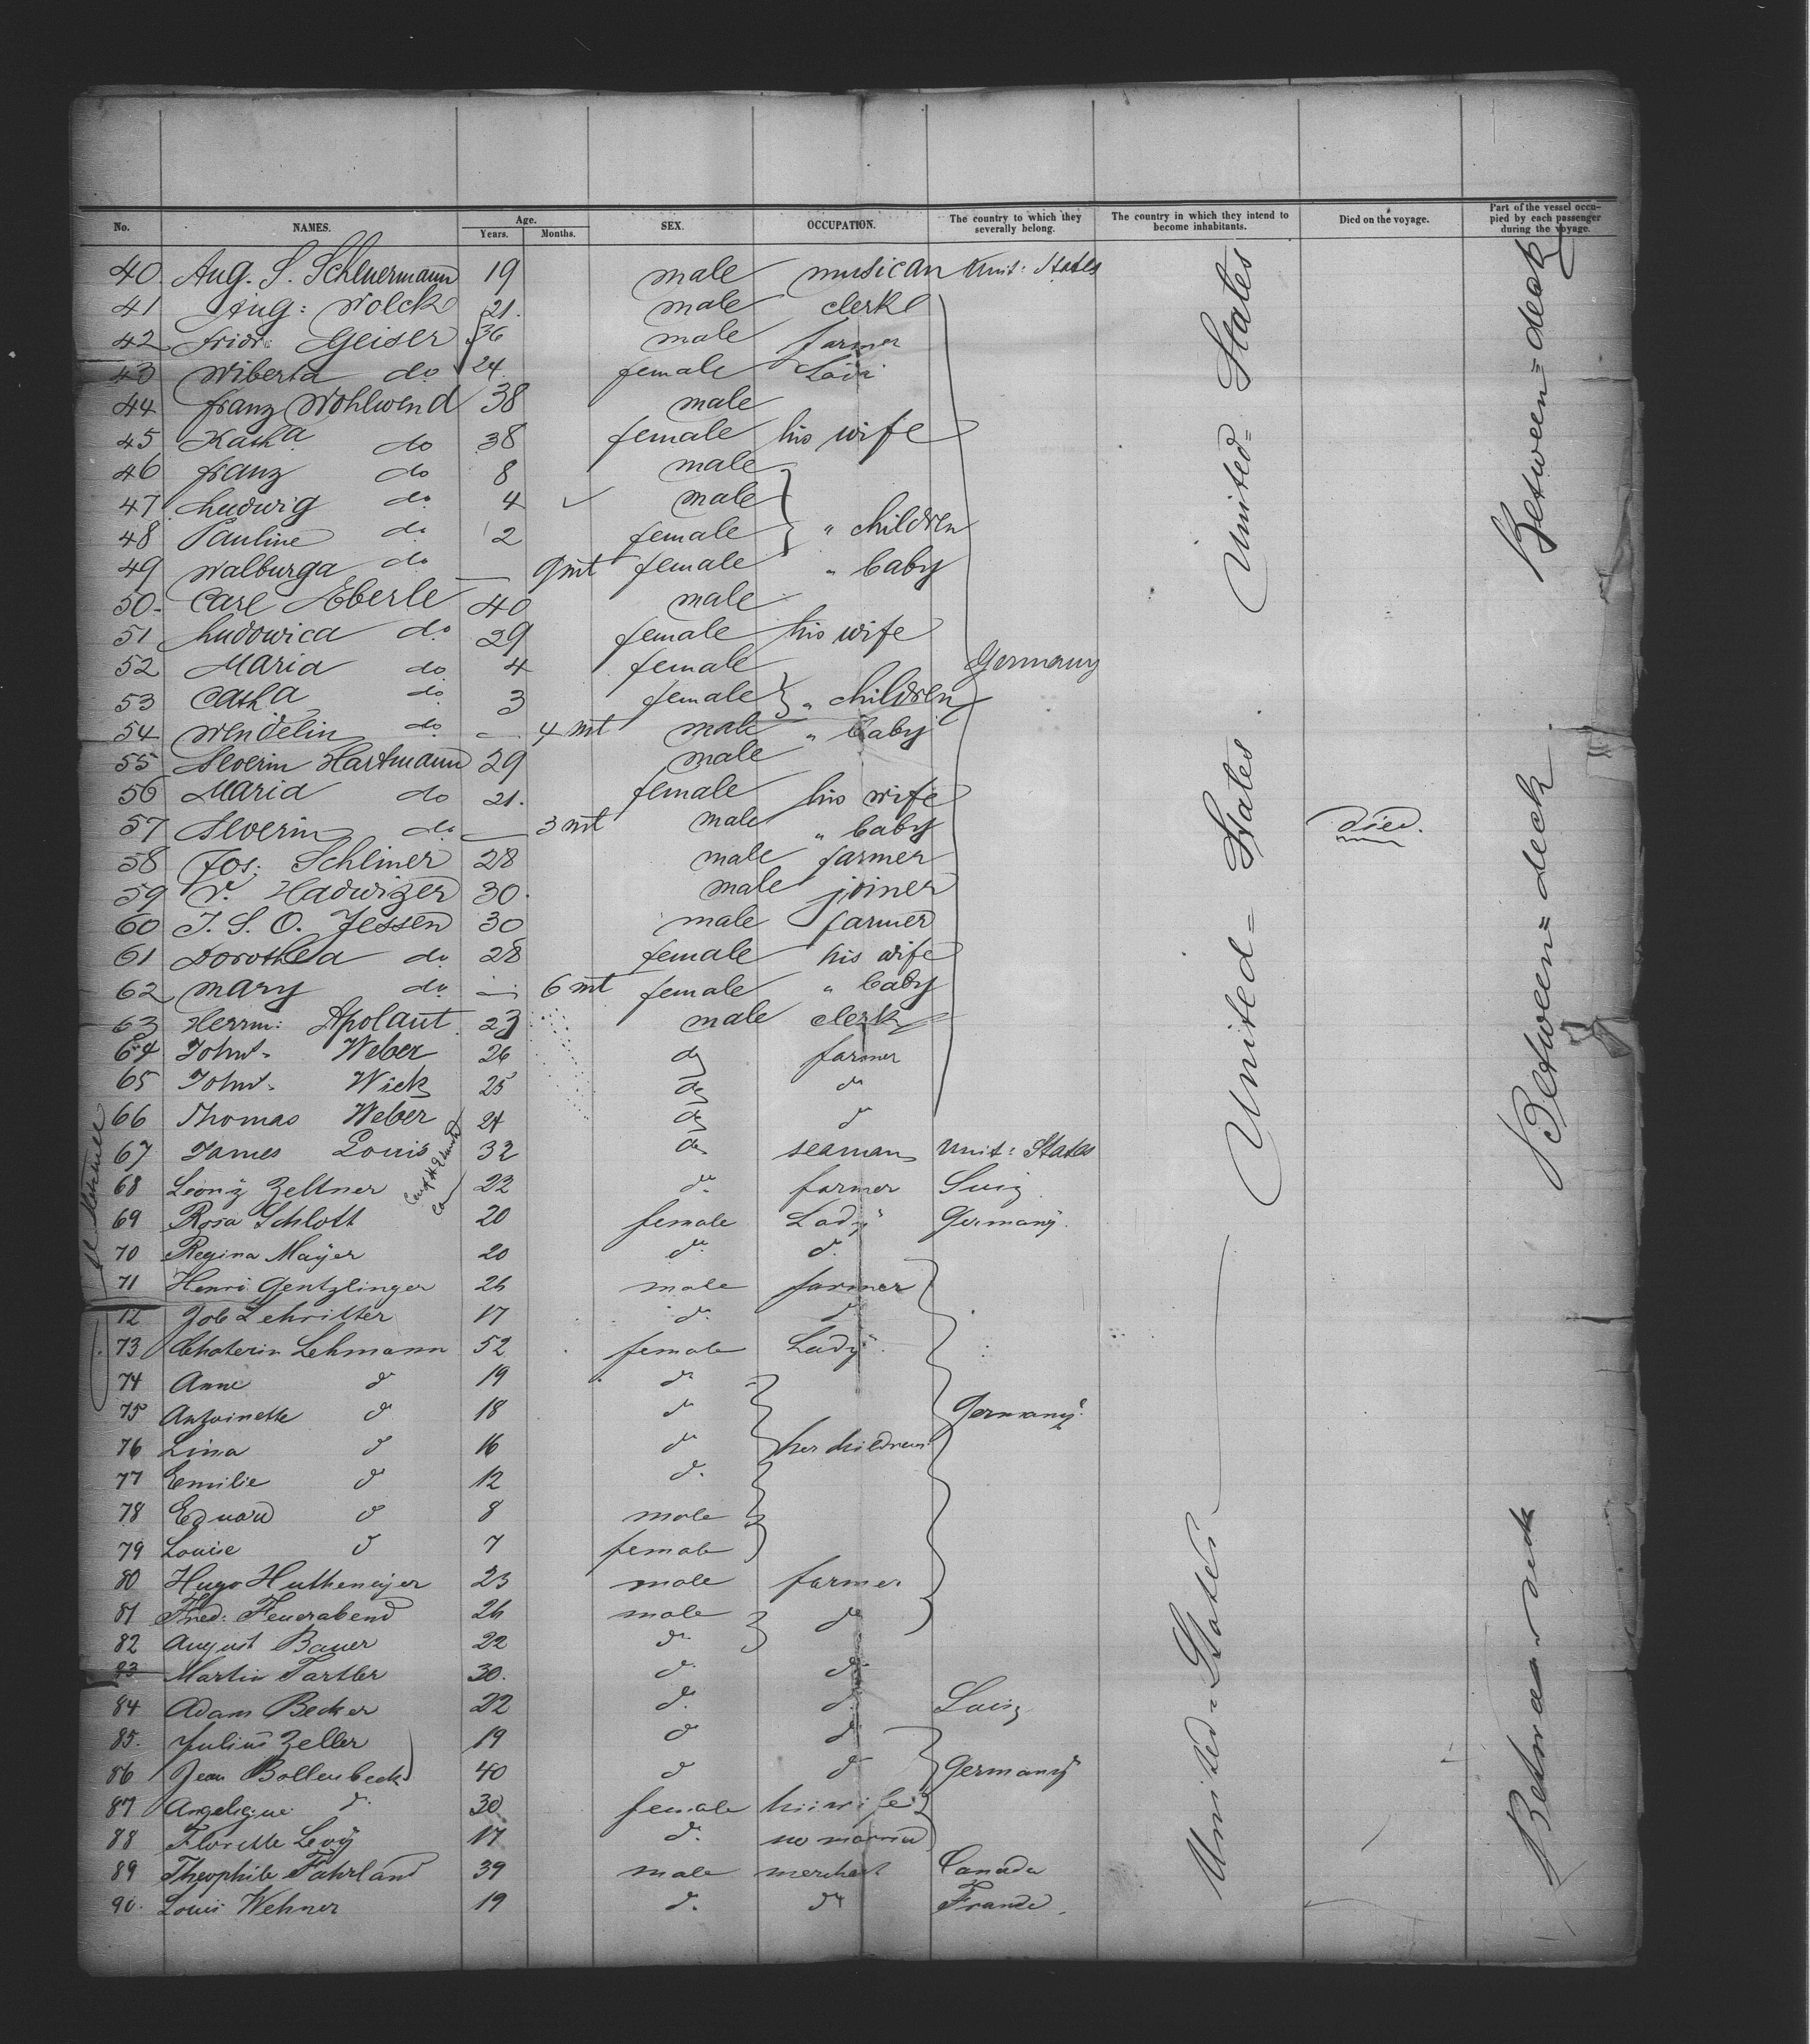 No. NAMES. Age. Years. Months. SEX. OCCUPATION. The country to which they severally belong. The country in which they intend to become inhabitants. Died on the voyage. Part of the vessel occupied by each passenger during the voyage.
40. Aug. S. Scheuermann 19 male musican Unit: States
41 Aug: Wolck 21. male clerk
42 Fridr: Geiser 36 male farmer
43 Wiberta do 24. female
44 Franz Wohlwend 38 male
45 Katha do 38 female his wife
46 Franz do 8 male
47 Ludwig do 4 male
48 Pauline do 2 female " children
49 Walburga do — 9 mt female " baby
50. Carl Eberle 40 male
51 Ludowica do 29 female his wife
52 Maria do 4 female Germany
53 Catha do 3 female " children
54 Wendelin do — 4 mt male " baby
55 Severin Hartmann 29 male
56 Maria do 21. female his wife
57 Severin do — 3 mt male " baby died.
58 Jos: Schliner 28 male farmer
59 V. Hadwizer 30. male joiner
60 J. S. O. Jessen 30 male farmer
61 Dorothea do 28 female his wife
62 Mary do — 6 mt female " baby
63 Herrm: Apolant 23 male clerk
64 Weber 26 do farmer
65 Wick 25 do do
66 Thomas Weber 24 do do
67 James Louis 32 do seaman Unit: States
68 Leonz Zeltner 22 do farmer Suiz
69 Rosa Schlott 20 female Lady Germany.
70 Regina Mayer 20 do do
71 Henri Gentzlinger 26 male farmer
72 Job Lehritter 17 do do
73 Chaterin Lehmann 52 female Lady
74 Anne do 19 do
75 Antoinette do 18 do Germany
76 Lina do 16 do her children
77 Emilie do 12 do
78 Eduard do 8 male
79 Louise do 7 female
80 Hugo Huthemeyer 23 male farmer
81 Fried: Feuerabend 26 male do
82 August Bauer 22 do
83 Martin Tartler 30. do do
84 Adam Becker 22 do do Suiz
85. Julius Zeller 19 do do
86 Jean Bollenbeck 40 do do Germany
87 Angelique do 30 female his wife
88 Florette Levy 17 do no married
89 Theophile Fahrland 39 male merchant Canada
90. Louis Wehner 19 do do France.
United = States
United = States
United = States
Between = deck
Between = deck
Between deck